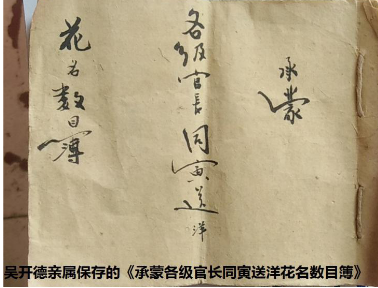 承蒙
各级官长同寅送洋
花名数目簿
吴开德亲属保存的《承蒙各级官长同寅送洋花名数目簿》